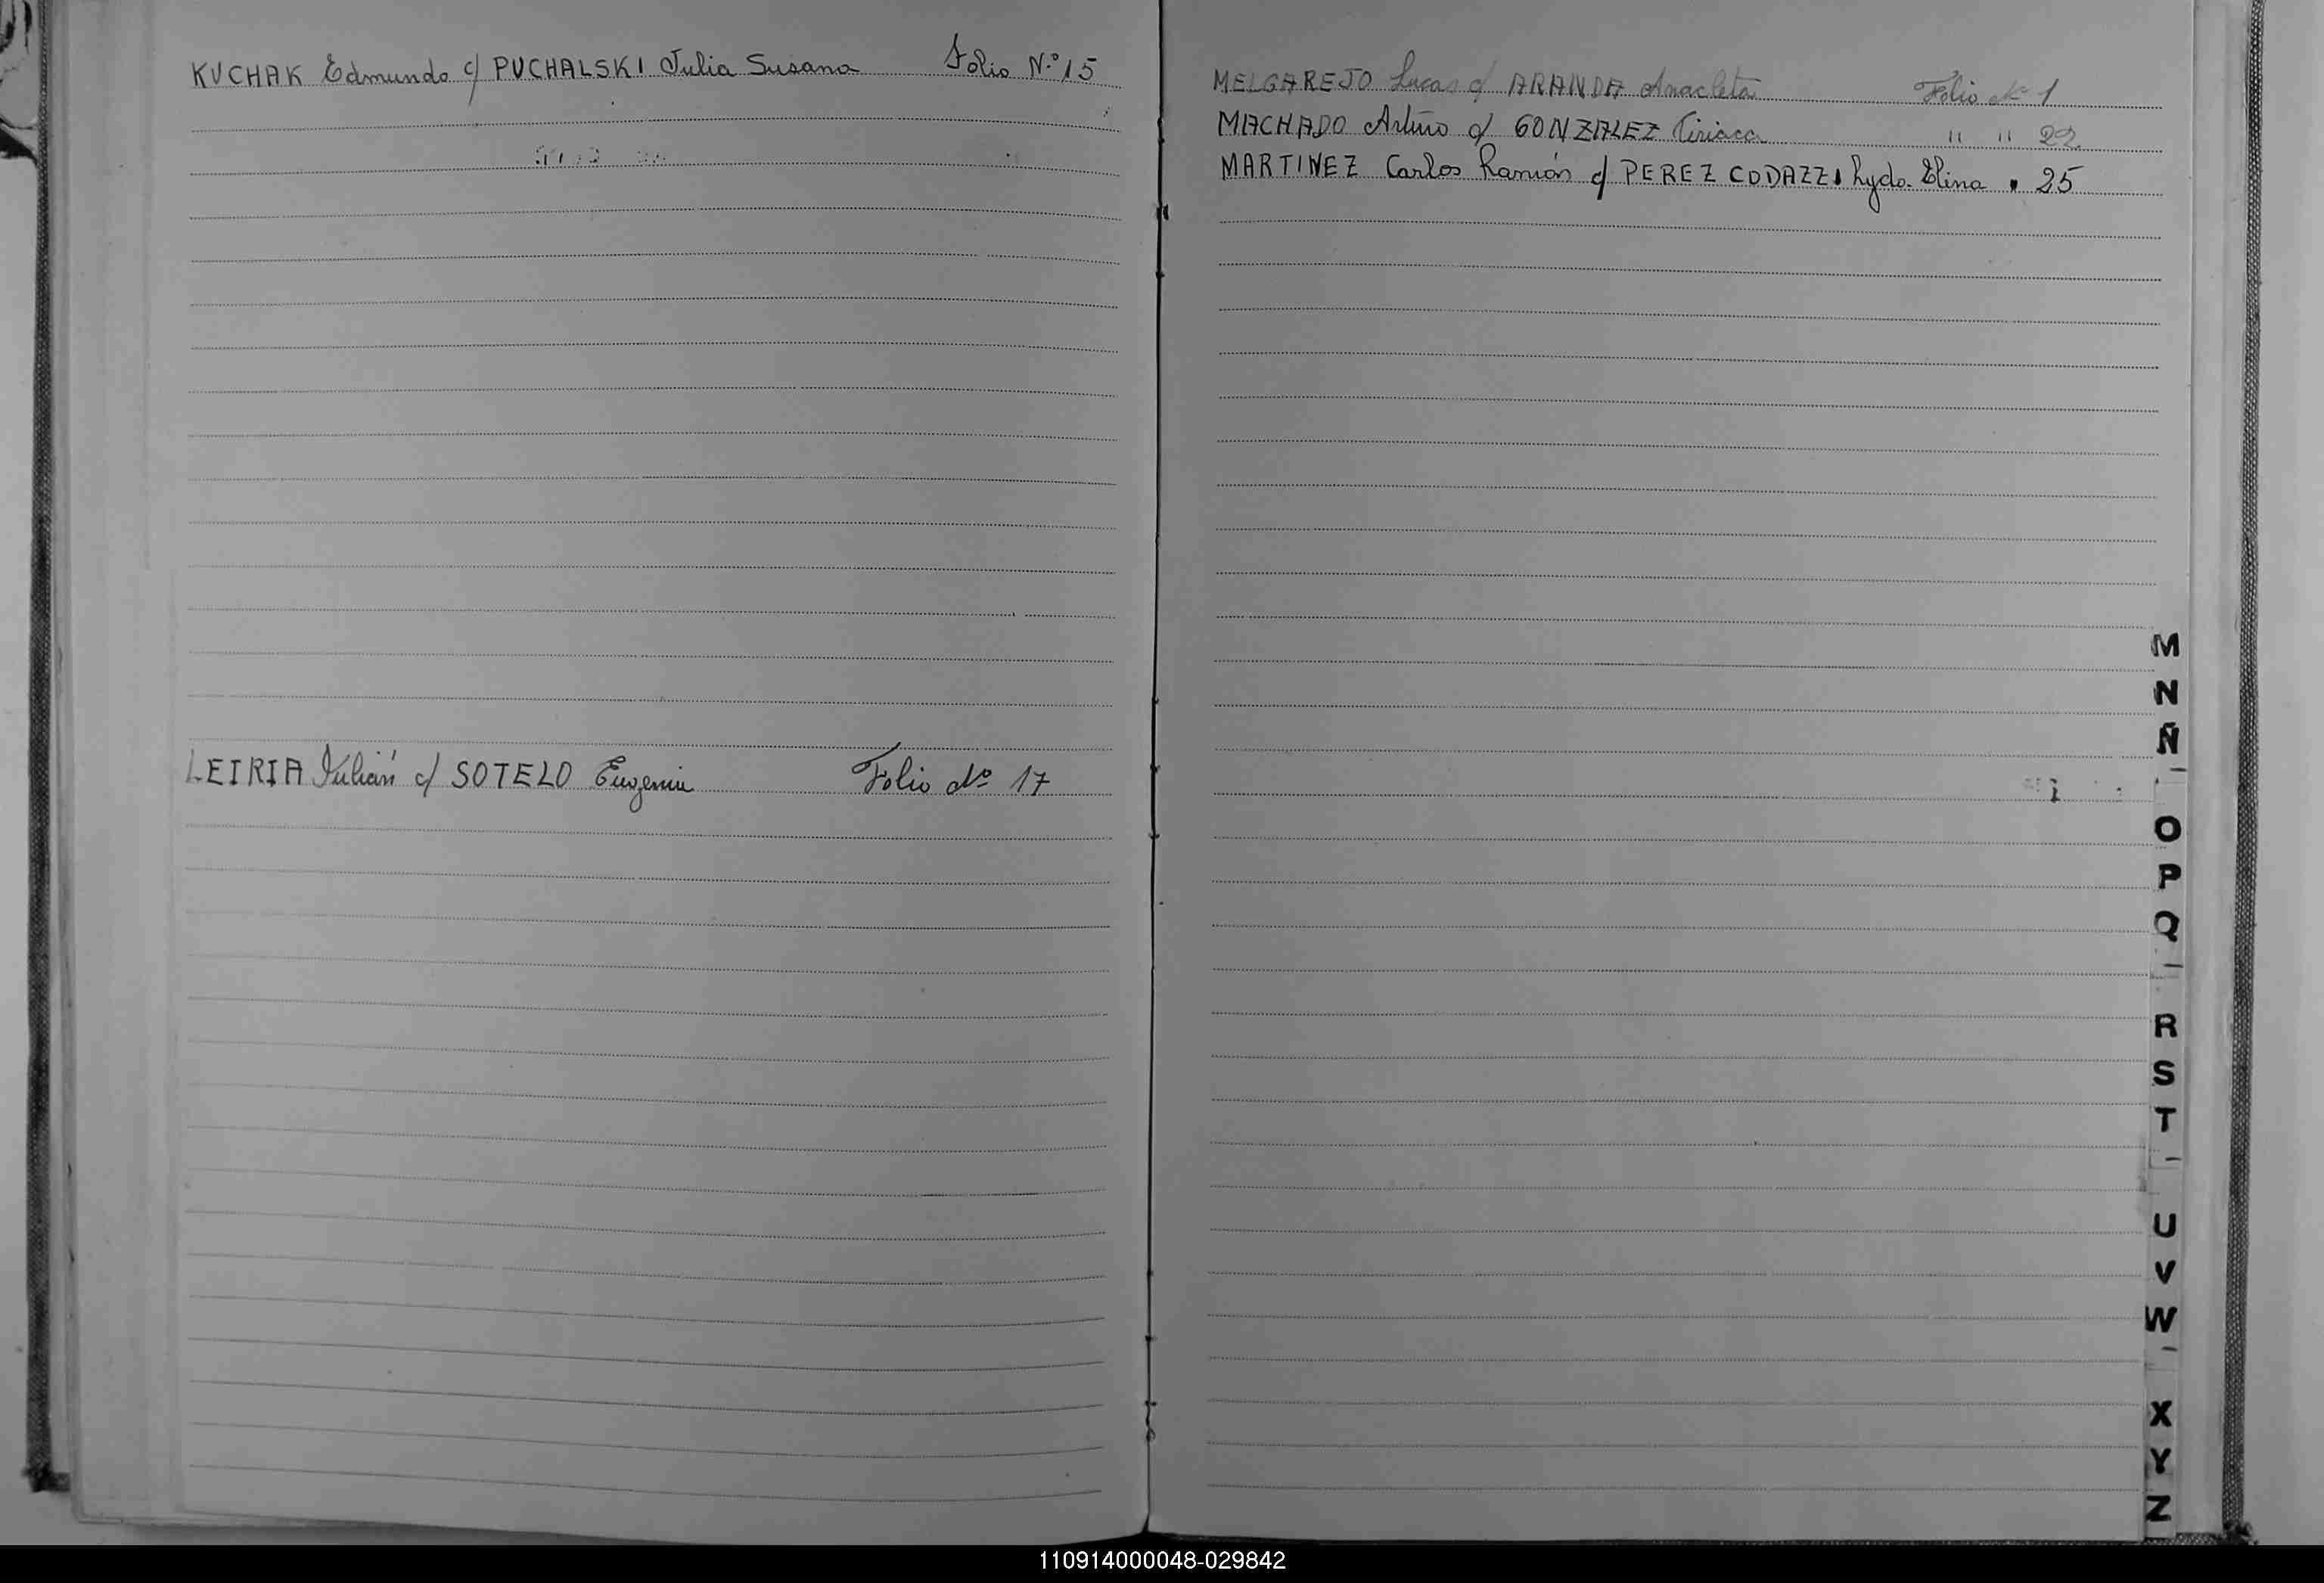 KUCHAK Edmundo c/ PUCHALSKI Julia Susana Folio N.º 15
LEIRIA Julián c/ SOTELO Eugenia Folio Nº 17
MELGAREJO Lucas c/ ARANDA Anacleta Folio Nº 1
MACHADO Arturo c/ GONZALEZ Ciriaca " " 22
MARTINEZ Carlos Ramón c/ PEREZ CODAZZI Lyda. Elina " 25
M
N
Ñ
O
P
Q
R
S
T
U
V
W
X
Y
Z
110914000048-029842